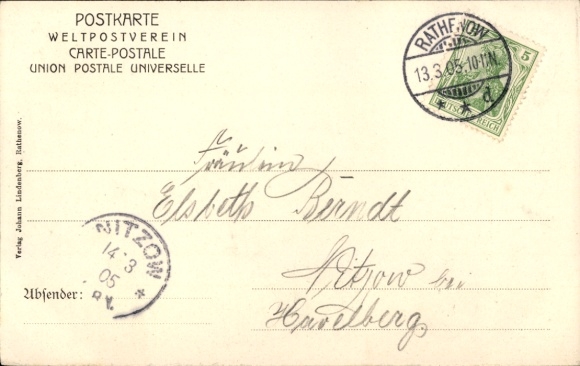 POSTKARTE
WELTPOSTVEREIN
CARTE-POSTALE
UNION POSTALE UNIVERSELLE
RATHENOW
13.3.05.10-11N
* * d
5
DEUTSCHES REICH
Fräulein
Elsbeth Berndt
Nitzow bei
Havelberg.
NITZOW
14 3
05
*
Absender:
Verlag Johann Lindenberg, Rathenow.